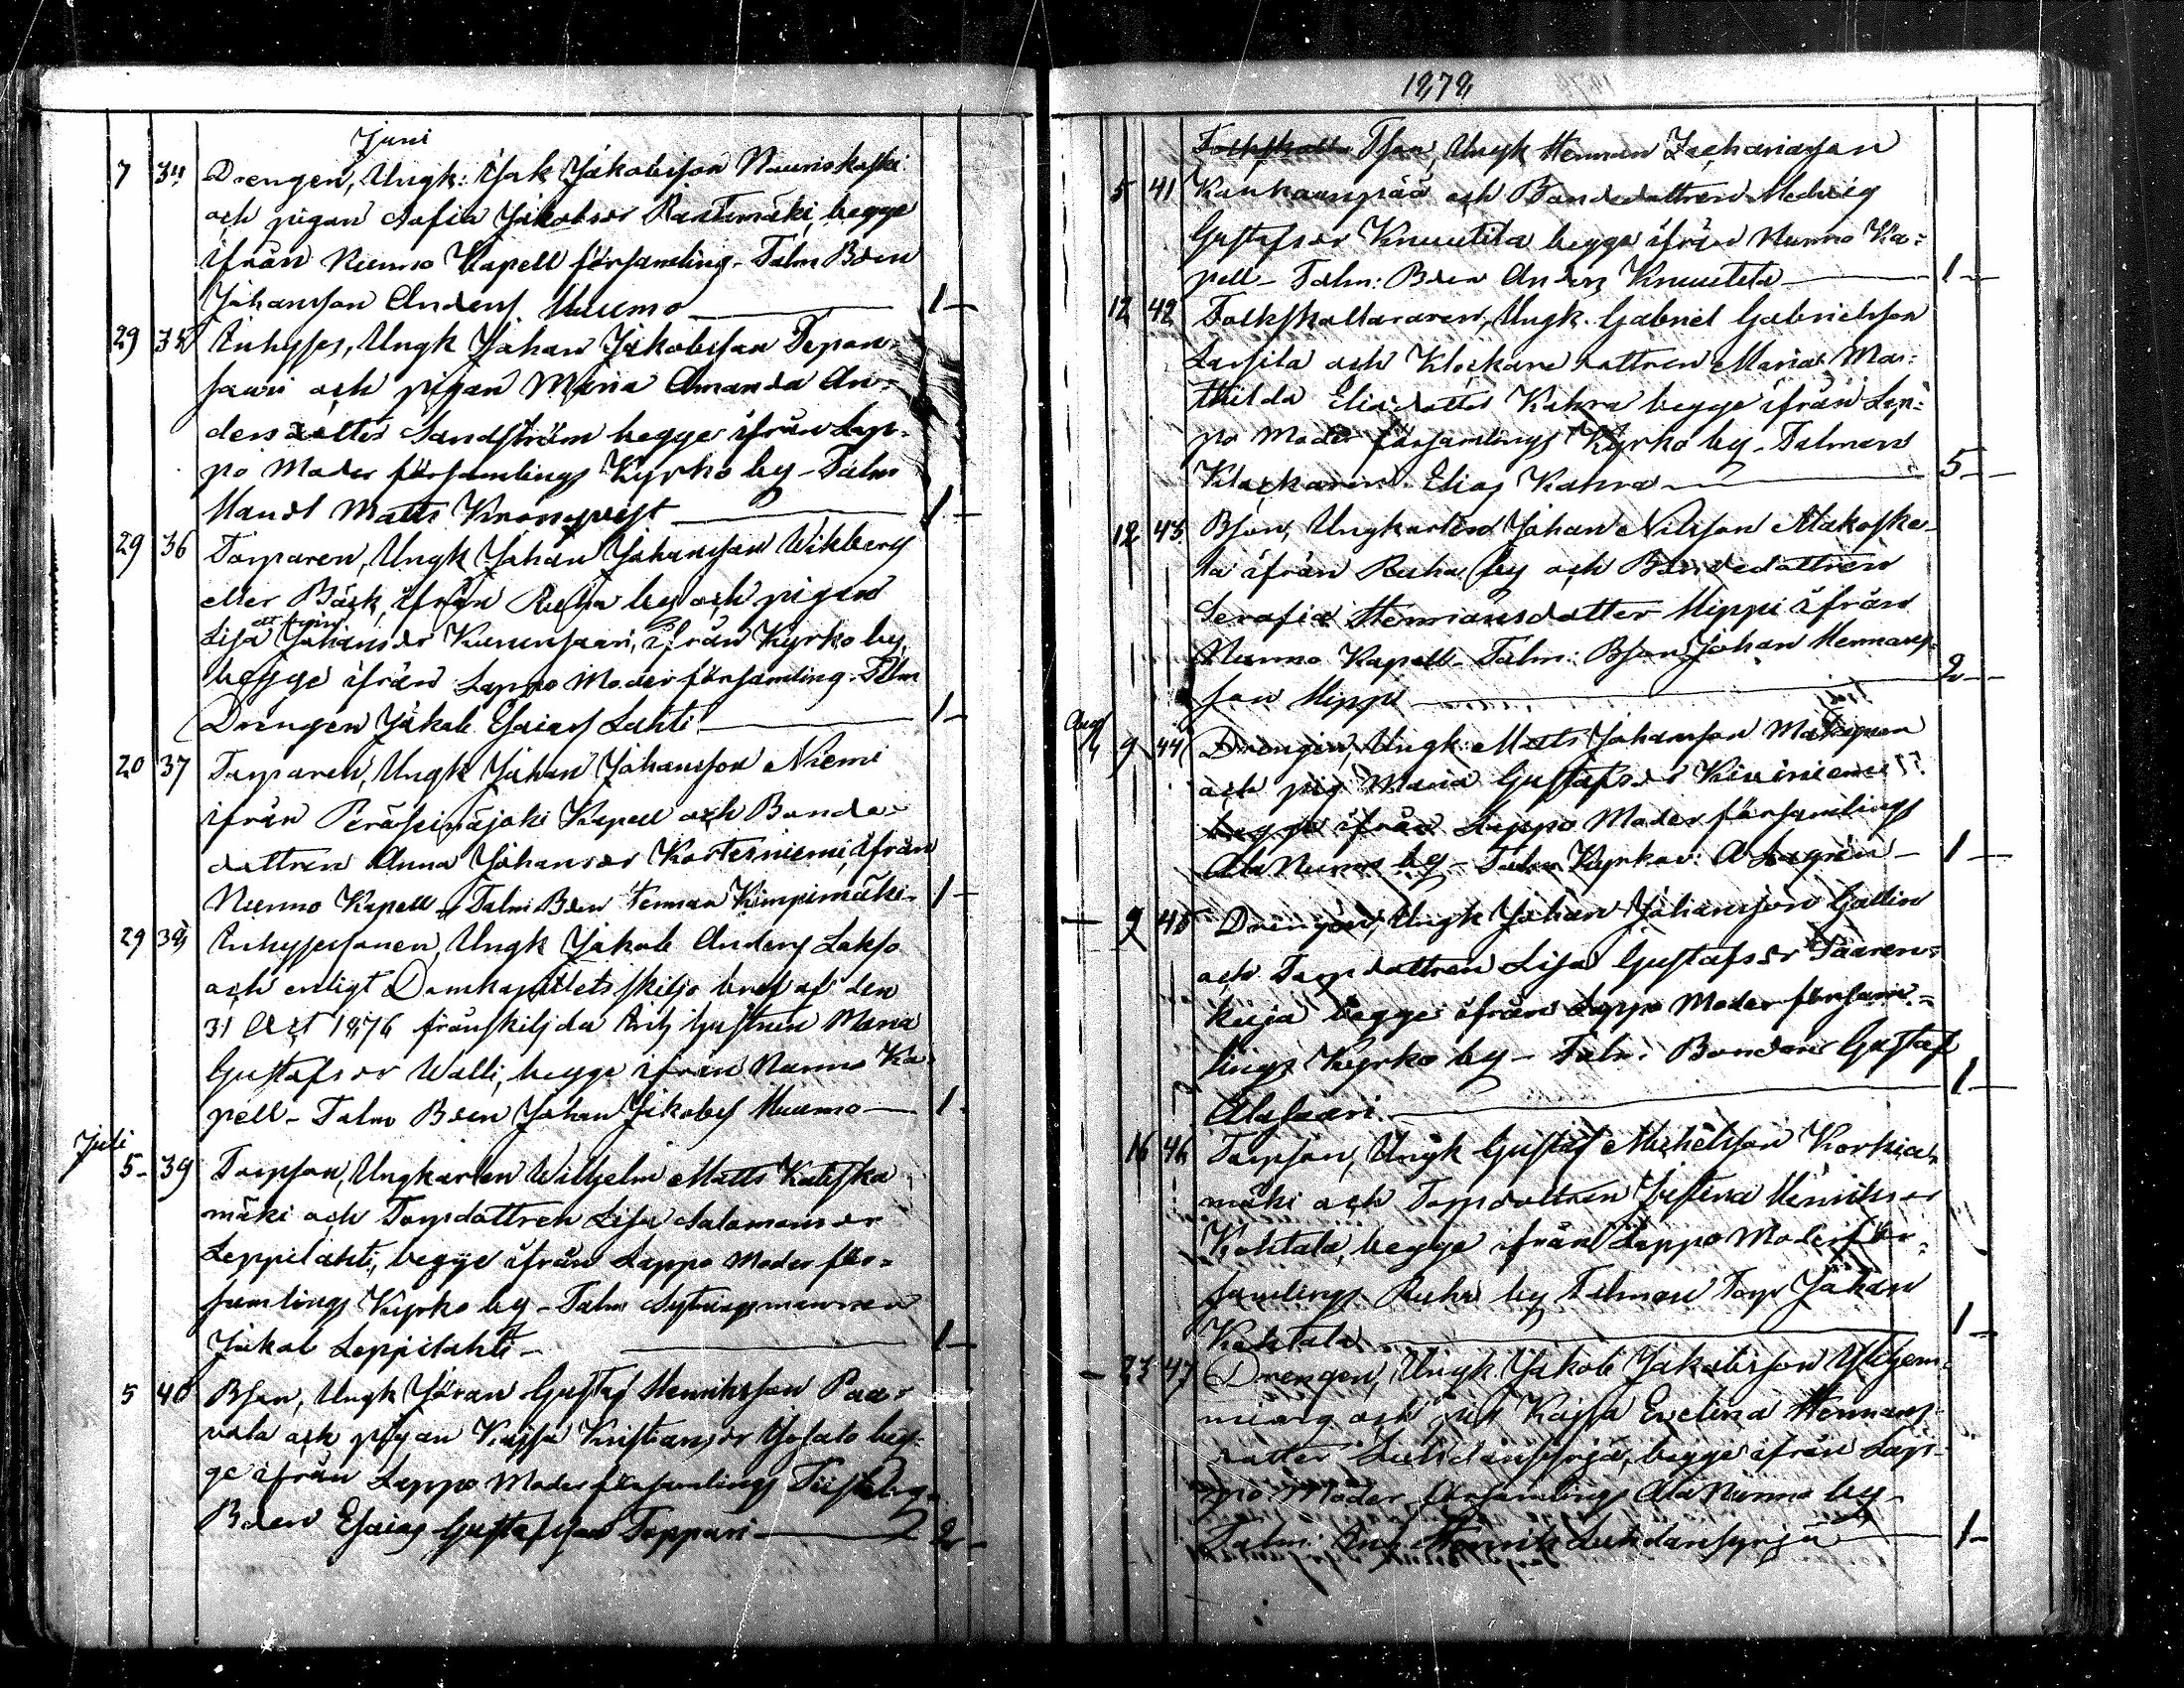 Juni
7 34 Drengen, Ungk: Isak Jakobsson Nauriskoski
och pigan Sofia Jakobsdr Rantamäki, begge
ifrån Nurmo Kapell församling - Talm Bden
Johansson Anders. Huumo 1 -
29 35 Inhyses, Ungk Johan Jakobsson Tepon-
saari och pigan Maria Amanda An-
dersdotter Sandström begge ifrån Lap-
po Moder församlings Kyrko by - Talm
Handl Matts Kronqvist 1 -
29 36 Torparen, Ungk Johan Johansson Wikberg
eller Bäck, ifrån Ruha by och pigan
Lisa Johansdr Kurunsaari, ifrån Kyrko by,
begge ifrån Lappo Moder församling - Talm
Drengen Jakob Esaiass Lahti 1 -
20 37 Torparen, Ungk Johan Johansson Niemi
ifrån Peräseinäjoki Kapell och Bonde-
dottren Anna Johansdr Kortesniemi, ifrån
Nurmo Kapell - Talm Bden Herman Kimpimäki 1 -
29 38 Inhysessonen, Ungk Jakob Anders Lakso
och enligt Domkapitlets skiljo bref af den
31 Oct 1876 frånskiljda Maria
Gustafsdr Walli, begge ifrån Nurmo Ka-
pell - Talm Bden Johan Jakobss Huumo 1 -
Juli
5 - 39 Torpson, Ungkarlen Wilhelm Matts Katiska
mäki och Torpdottren Lisa Salomonsdr
Leppilahti, begge ifrån Lappo Moder för-
samlings Kyrko by - Talm Sytningsmannen
Jakob Leppilahti - 1 -
5 40 Bson, Ungk Göran Gustaf Henriksson Paa-
vola och pigan Kajsa Kristiansdr Ylisalo beg-
ge ifrån Lappo Moder församlings Tiistenj.
Bden Esaias Gustafsson Toppari 2 -
1878
Folkskoll Tson, Ungk Herman Zachariasson
5 41 Kankaanpää och Bondedottren Hedvig
Gustafsdr Knuutila begge ifrån Nurmo Ka-
pell - Talm: Bden Anders Knuutila 1 -
12 42 Folkskolläraren, Ungk. Gabriel Gabrielsson
Laosila och Klockare dottren Maria Ma-
thilda Eliædotter Kahra begge ifrån Lap-
po Moder församlings Kyrko by - Talman
Klockaren Elias Kahra 5 -
12 43. Bson, Ungkarlen Johan Nilsson Alakoske-
la ifrån Ruha by och Bondedottren
Serafia Hermansdotter Hippi ifrån
Nurmo Kapell - Talm: Bson Johan Hermans-
son Hippi 2 -
Aug
9 44 Drengen, Ungk: Matts Johansson
och pig Maria Gustafsdr Kiviniemi
begge ifrån Lappo Moder församlings
Ala Nurmo by - Talm Kyrkov: A 1 -
- 9 45 Drengen, Ungk Johan Johansson Gallin
och Torpdottren Lisa Gustafsdr Saaren-
keija begge ifrån Lappo Moder försam-
lings Kyrko by - Talm: Bonden Gustaf
Alasaari. 1 -
16 46 Torpson, Ungk Gustaf Michelsson Korkia-
mäki och Torpdottren Justina Henriksdr
Kohtala, begge ifrån Lappo Moderför-
samlings Ruha by Talman Torp Johan
Kohtala 1 -
- 23 47 Drengen, Ungk Jakob Jakobsson
och pig Kajsa Evelina Hermans-
dotter Luhdansyrjä, begge ifrån Lap-
po Moder församlings Ala Nurmo by -
Talm: Inh Henrik Luhdansyrjä 1 -